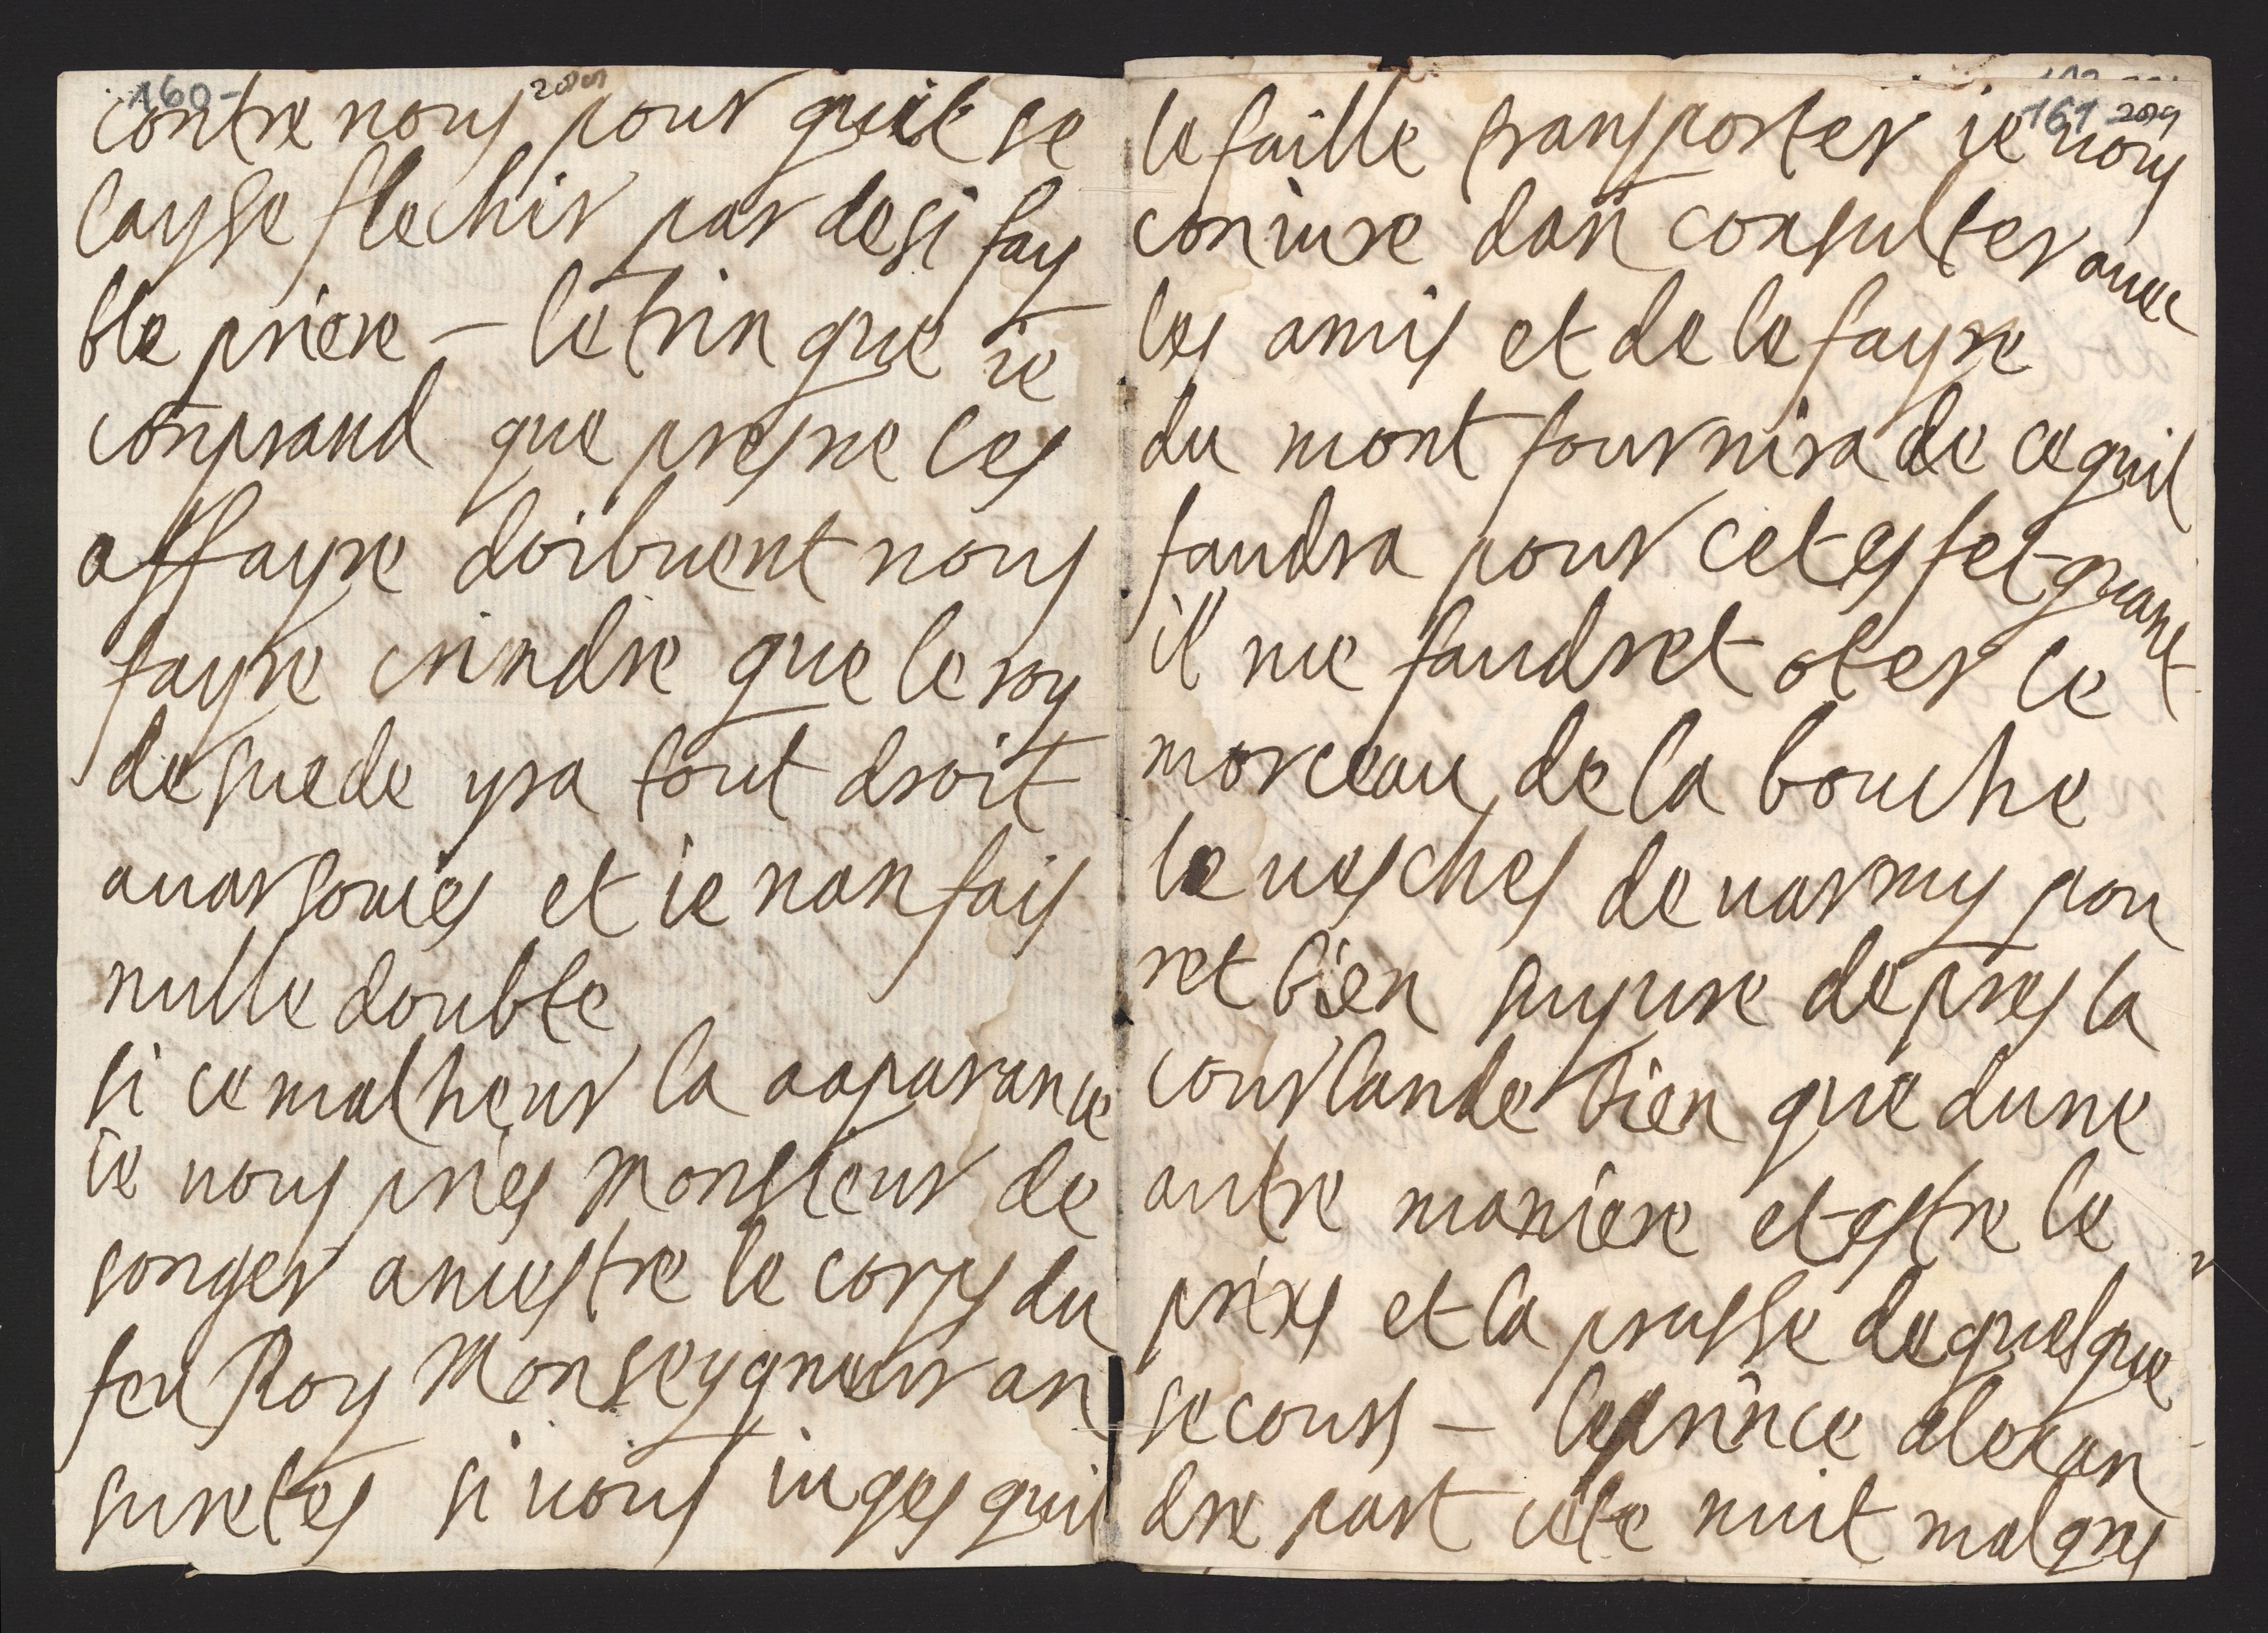 160-
contre nous pour quil se
laysse flechir par de si fay
ble priere - le trin que ie
conprand que presne les
affayre doibuent nous
fayre crindre que le roy
de suede yra tout droit
a uarsouies et ie nan fais
nulle doubte
si ce malheur la a aparance
ie uous pries Monsieur de
songer a mestre le corps du
feu Roy Monseygneur an
suretes si uous iuges quil
161 209
le faille transporter ie uous
coniure dan consulter auec
les amis et de le fayre
du mont fournira de ce quil
faudra pour cet esfet quant
il me faudret oter le
morceau de la bouche
le uesches de uarmy pou
ret bien suyure de pres la
courlande bien que dune
autre maniere et estre le
prixs et la prusse de quelque
secours - le prince alexan
dre part cete nuit malgres